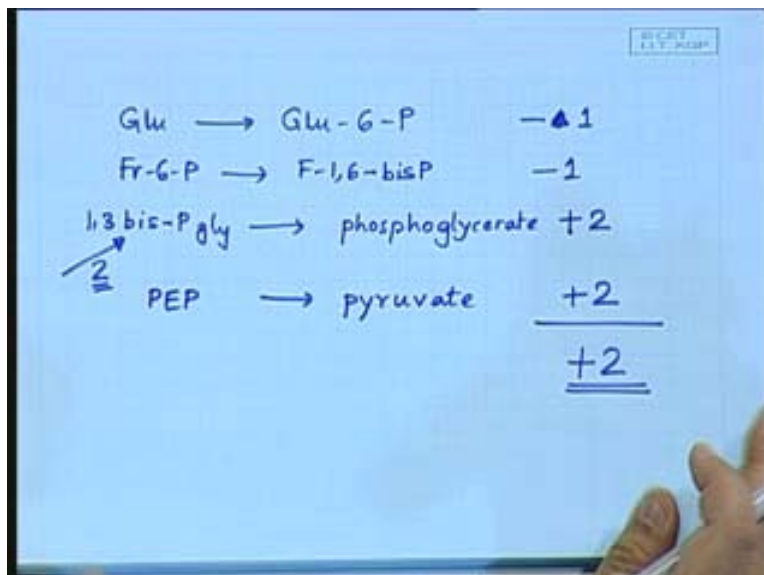 ©CET
I.I.T. KGP
Glu → Glu-6-P -1
Fr-6-P → F-1,6-bisP -1
1,3 bis-P gly → phosphoglycerate +2
2
PEP → pyruvate +2
+2